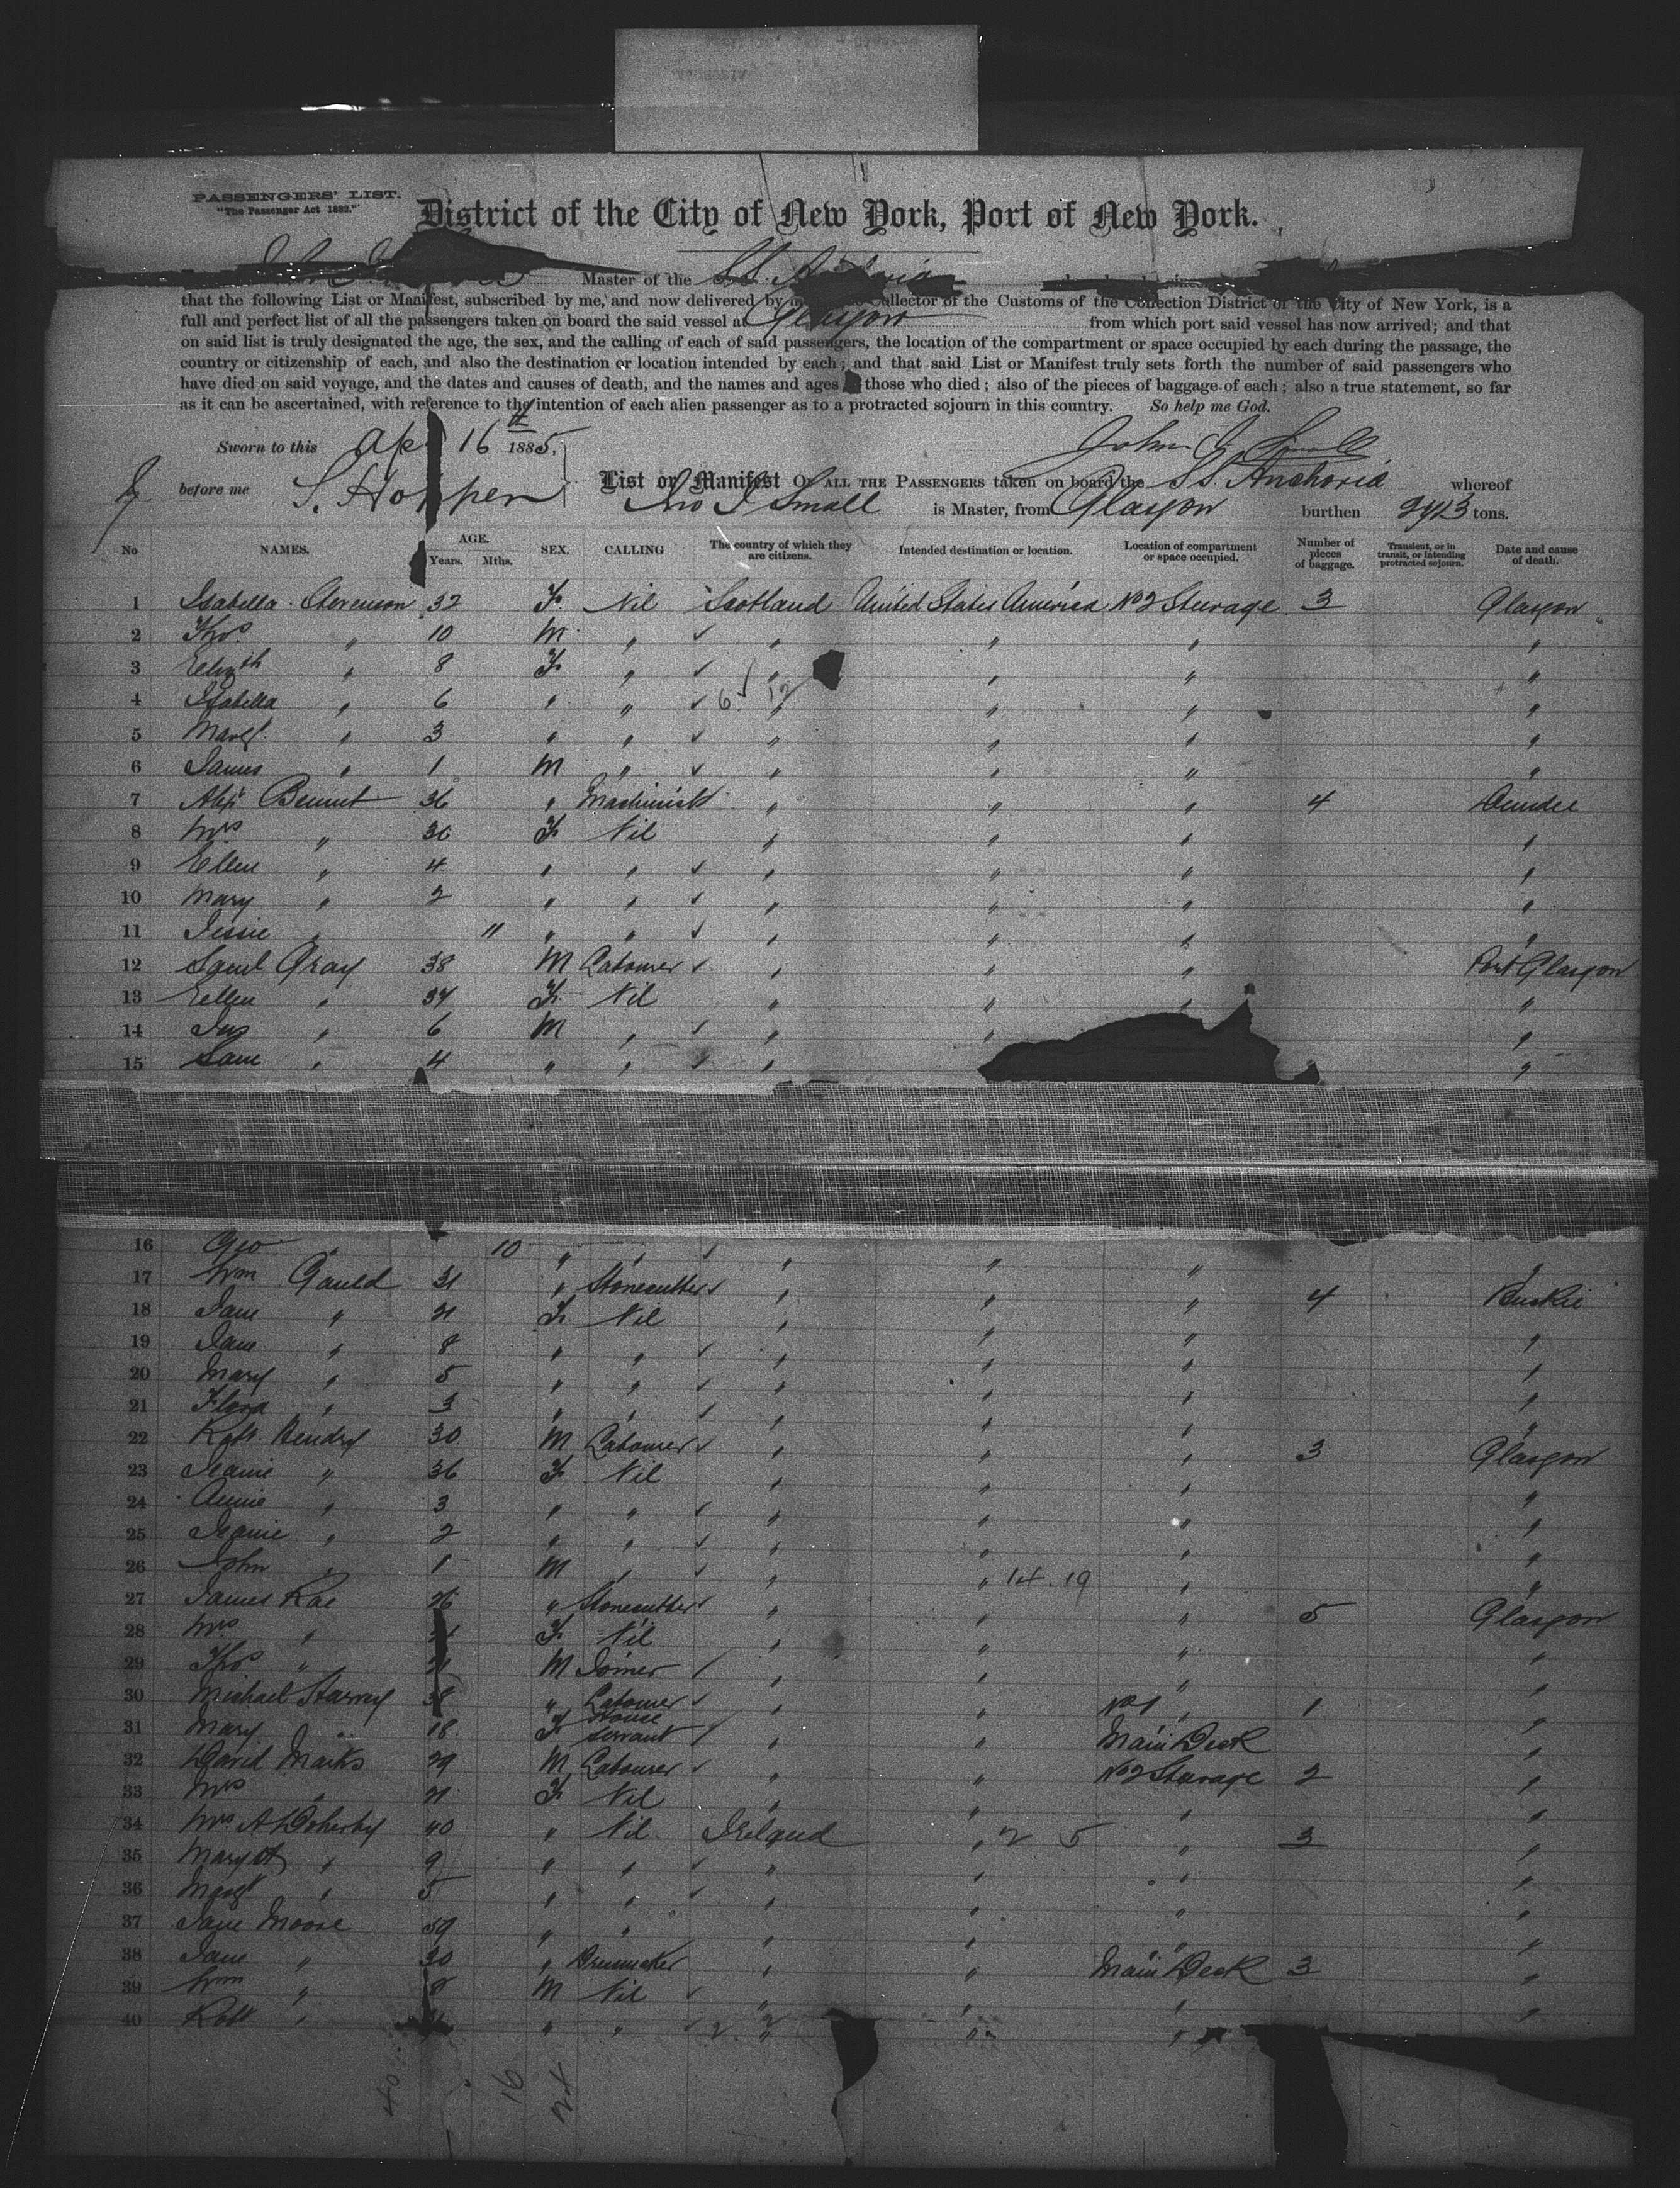 PASSENGERS' LIST.
"The Passenger Act 1882."
District of the City of New York, Port of New York.
Master of the S.S.
that the following List or Manifest, subscribed by me, and now delivered by Collector of the Customs of the Collection District of the City of New York, is a
full and perfect list of all the passengers taken on board the said vessel at Glasgow from which port said vessel has now arrived; and that
on said list is truly designated the age, the sex, and the calling of each of said passengers, the location of the compartment or space occupied by each during the passage, the
country or citizenship of each, and also the destination or location intended by each; and that said List or Manifest truly sets forth the number of said passengers who
have died on said voyage, and the dates and causes of death, and the names and ages those who died; also of the pieces of baggage of each; also a true statement, so far
as it can be ascertained, with reference to the intention of each alien passenger as to a protracted sojourn in this country. So help me God.
Sworn to this Apr 16th 1885. John J Small
before me S. Hopper List or Manifest OF ALL THE PASSENGERS taken on board the SS. Anchoria whereof
Jno J Small is Master, from Glasgow burthen tons.
No NAMES. AGE. Years. Mths. SEX. CALLING The country of which they are citizens. Intended destination or location. Location of compartment or space occupied. Number of pieces of baggage. Transient, or in transit, or intending protracted sojourn. Date and cause of death.
1 Isabella Stevenson 32 F. Nil Scotland United States America No 2 Steerage 3 Glasgow
2 Thos " 10 M " " " " "
3 Elizth " 8 F " " " " "
4 Isabella " 6 " " 6 12 " " " "
5 Margt. " 3 " " " " " "
6 James " 1 M " " " " "
7 Alexr Bennet 36 " Machinist " " " 4 Dundee
8 Mrs " 30 F Nil " " " "
9 Ellen " 4 " " " " " "
10 Mary " 2 " " " " " "
11 Jessie " 11 " " " " " "
12 Saml Gray 38 M Labourer " " " Port Glasgow
13 Ellen " 34 F Nil " " " "
14 Jas " 6 M " " " "
15 Sam " 4 " " " "
16 Geo " 10 " " " " " "
17 Wm Gauld 31 " Stonecutter " " " 4 Buckie
18 Jane " 31 F. Nil " " " "
19 Jane " 8 " " " " " "
20 Mary " 5 " " " " " "
21 Flora " 3 " " " " " "
22 Robt. Hendry 30 M Labourer " " " 3 Glasgow
23 Jeanie " 36 F Nil " " " "
24 Annie " 3 " " " " " "
25 Jeanie " 2 " " " " " "
26 John " 1 M " " " 14.19 " "
27 James Rae 26 " Stonecutter " " " 5 Glasgow
28 Mrs " F Nil " " " "
29 Thos " M Joiner " " " "
30 Michael 38 " Labourer " " No 1 " 1 "
31 Mary " 18 F House Servant " " Main Deck "
32 David Marks 29 M Labourer " " No 2 Steerage 2 "
33 Mrs " 21 F Nil " " " "
34 Mrs. A Doherty 40 " Nil Ireland " 2 5 " 3 "
35 Mary A " 9 " " " " " "
36 Margt " 5 " " " " " "
37 Jane Moore 59 " " " " " "
38 Jane " 30 " Dressmaker " " Main Deck 3 "
39 Wm " 8 M Nil " " " "
40 Robt " " " 2 2 " " " "
40 16 24